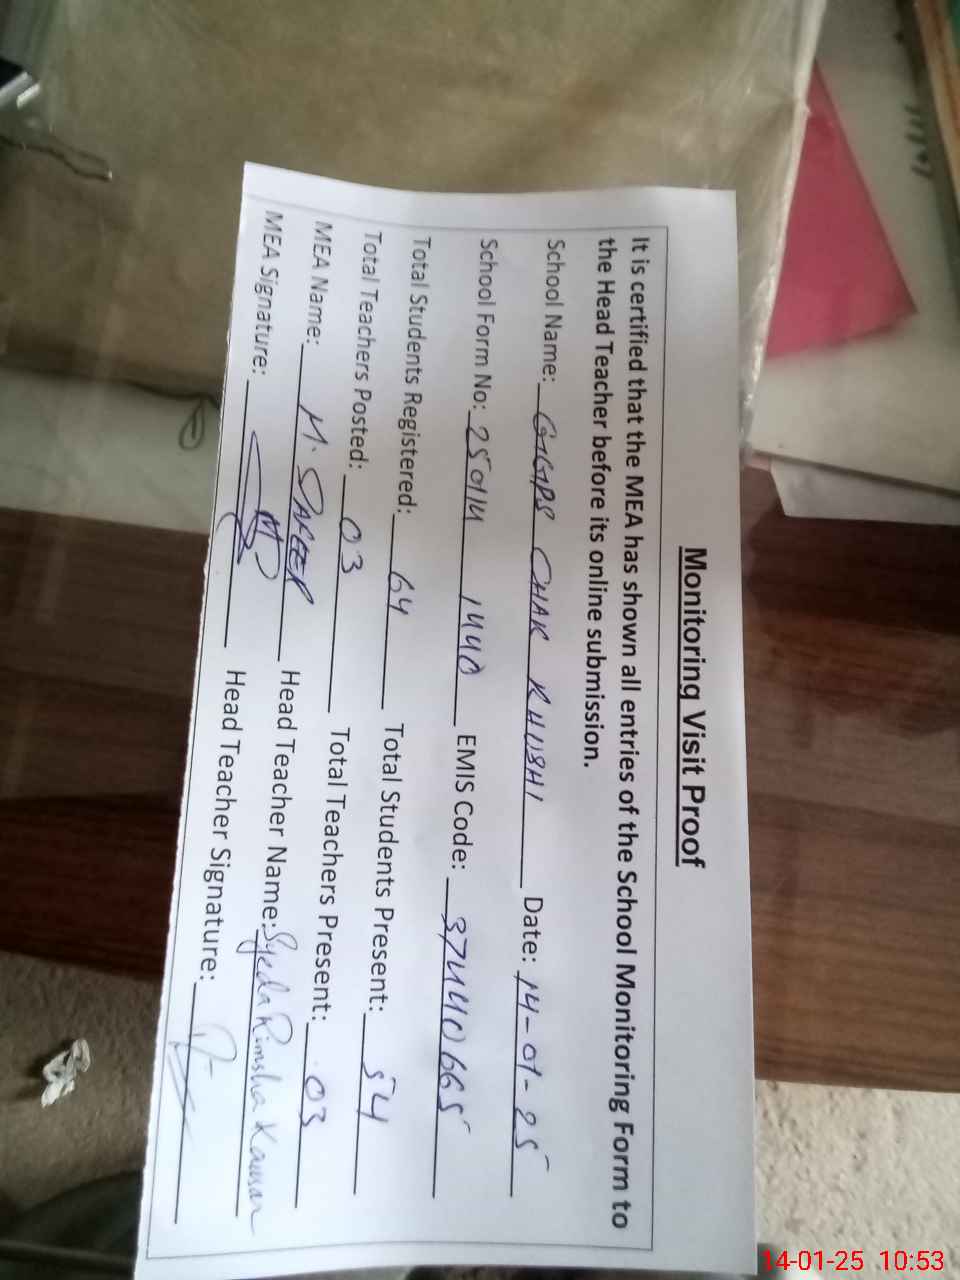 Monitoring Visit Proof
It is certified that the MEA has shown all entries of the School Monitoring Form to
the Head Teacher before its online submission.
School Name: GGPS CHAK KHUSHI Date: 14-01-25
School Form No: 25014 1440 EMIS Code: 37440665
Total Students Registered: 64 Total Students Present: 54
Total Teachers Posted: 03 Total Teachers Present: 03
MEA Name: M. SAFEER Head Teacher Name: Syeda Rimsha Kawsar
MEA Signature: Head Teacher Signature:
14-01-25 10:53